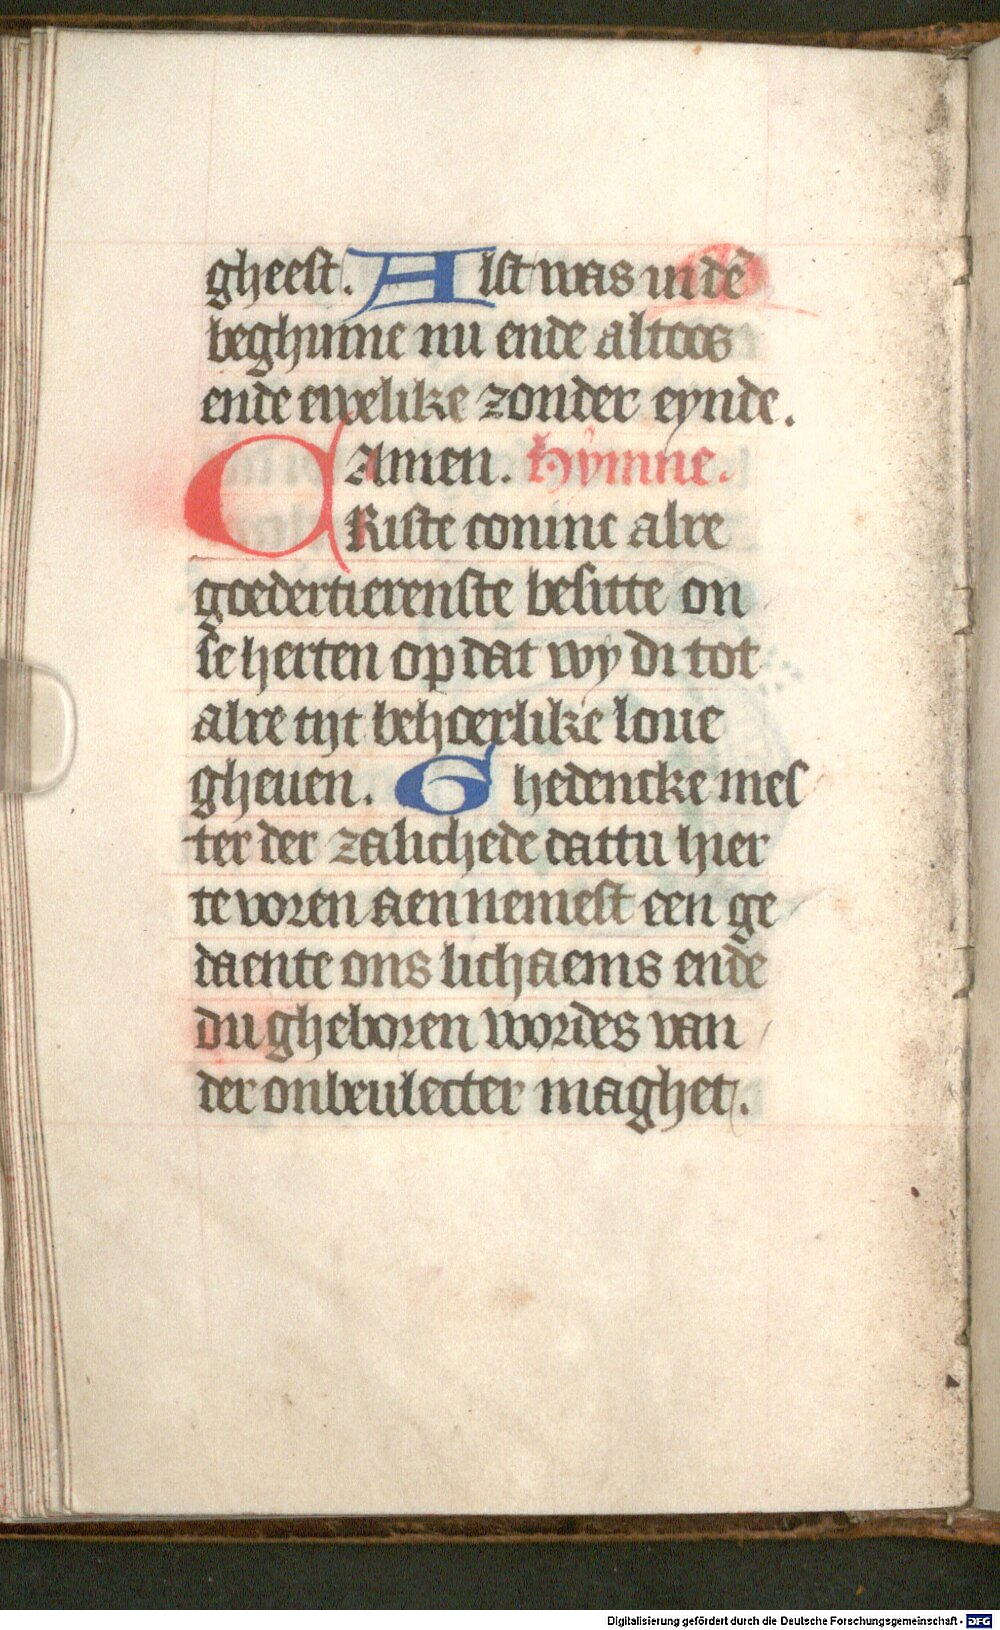 gheest. Alst was in dē
beghinne nu ende altoos
ende ewelike zonder eynde.
Amen. Hymne.
CRiste coninc alre
goedertierenste besitte on
se herten op dat wy di tot
alre tijt behoerlike loue
gheuen. Ghedencke mes
ter der zalichede dattu hier
te voren aennemest een ge
daente ons lichaems ende
du gheboren wordes van
der onbeulecter maghet.
Digitalisierung gefördert durch die Deutsche Forschungsgemeinschaft - DFG